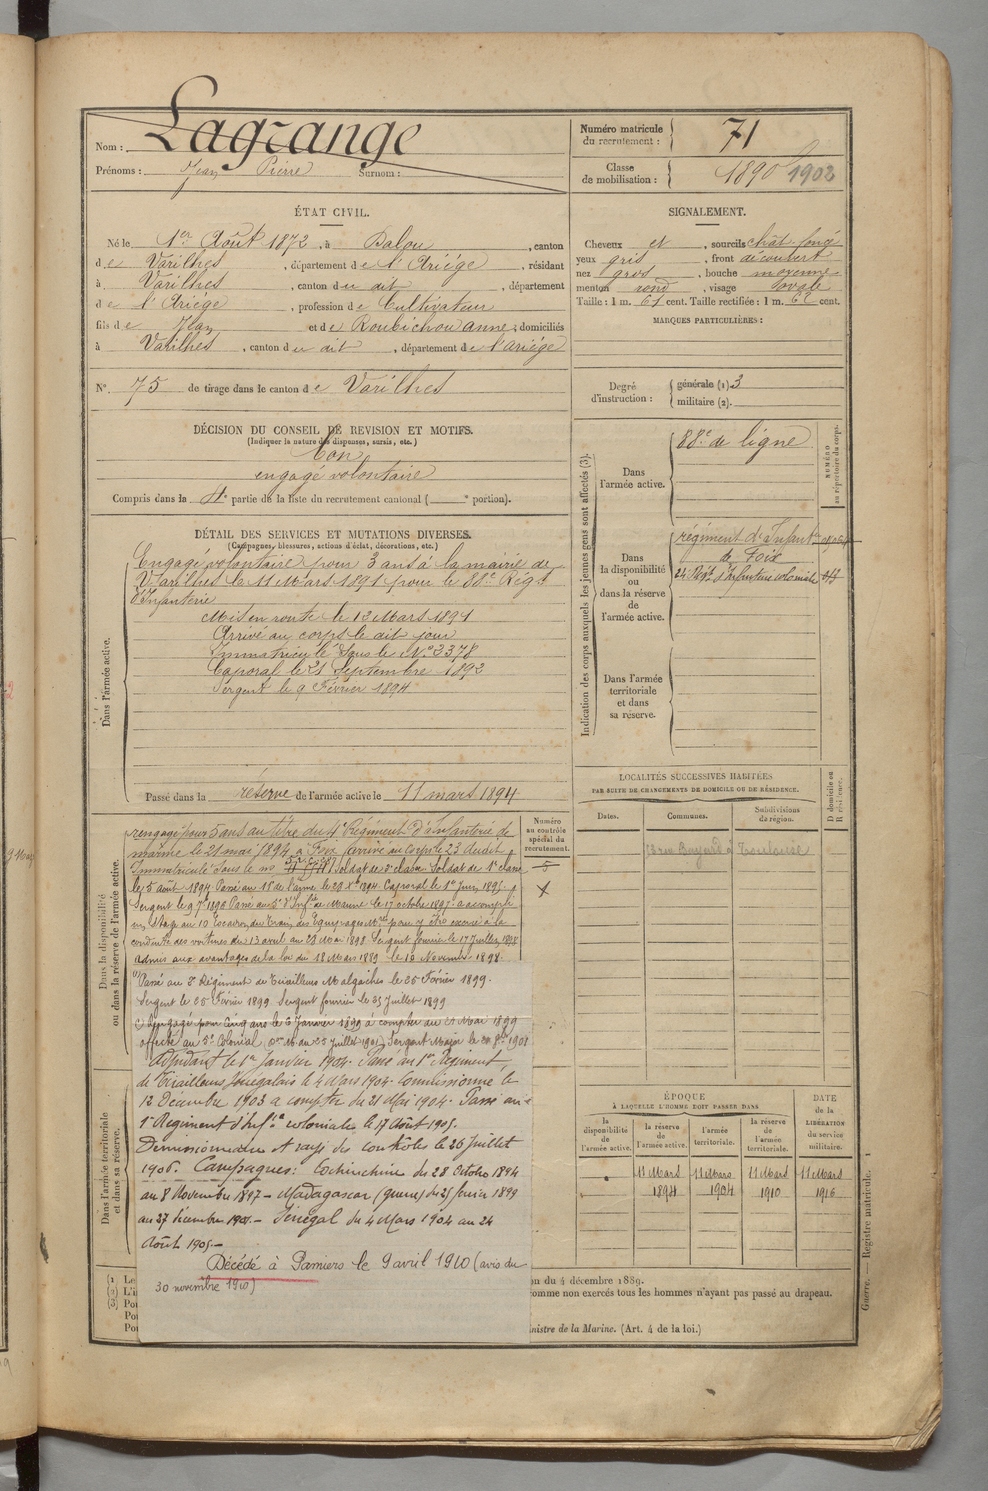 Nom : Lagrange
Prénoms : Jean Pierre Surnom :
Numéro matricule du recrutement : 71
Classe de mobilisation : 1890 1902
ÉTAT CIVIL.
Né le 1er Août 1872, à Dalou, canton
de Varilhes, département de l'Ariège, résidant
à Varilhes, canton du dit, département
de l'Ariège, profession de Cultivateur
fils de Jean et de Roubichou anne, domiciliés
à Varilhes, canton du dit, département de l'ariège
SIGNALEMENT.
Cheveux et, sourcils chât. foncé
yeux gris, front découvert
nez gros, bouche moyenne
menton rond, visage ovale
Taille : 1 m. 61 cent. Taille rectifiée : 1 m. 62 cent.
MARQUES PARTICULIÈRES :
N°. 75 de tirage dans le canton de Varilhes
Degré d'instruction : générale (1). 3
militaire (2).
DÉCISION DU CONSEIL DE REVISION ET MOTIFS.
(Indiquer la nature des dispenses, sursis, etc.)
Bon
engagé volontaire
Compris dans la 4e partie de la liste du recrutement cantonal ( e portion).
DÉTAIL DES SERVICES ET MUTATIONS DIVERSES.
(Campagnes, blessures, actions d'éclat, décorations, etc.)
Dans l'armée active.
Engagé volontaire pour 3 ans à la mairie de
Varilhes le 11 Mars 1891 pour le 88e Régt
d'Infanterie
Mis en route le 13 Mars 1891
Arrivé au corps le dit jour
Immatriculé sous le No 3378
Caporal le 21 Septembre 1892
Sergent le 9 Février 1894
Passé dans la réserve de l'armée active le 11 mars 1894
Indication des corps auxquels les jeunes gens sont affectés (3).
NUMÉRO au répertoire du corps.
Dans l'armée active.
88e de ligne
Dans la disponibilité ou dans la réserve de l'armée active.
régiment d'Infantie
de Foix
24 Régt d'Infanterie coloniale
Dans l'armée territoriale et dans sa réserve.
LOCALITÉS SUCCESSIVES HABITÉES
PAR SUITE DE CHANGEMENTS DE DOMICILE OU DE RÉSIDENCE.
D domicile ou R résidence.
Dates. Communes. Subdivisions de région.
rue Bayard à Toulouse
Dans la disponibilité ou dans la réserve de l'armée active.
Numéro au contrôle spécial du recrutement.
rengagé pour 5 ans au titre du 4e Régiment d'Infanterie de
marine le 21 mai 1894, à Foix, arrivé au Corps le 23 dudit,
Immatriculé sous le no Soldat de 2e classe Soldat de 1e classe
le 5 août 1894. Passé au 11e de l'arme le 20 1894. Caporal le 1er Juin 1895.
Sergent le 9 1896 Passé au d'Infie de Marine le 17 octobre 1897. a accompli
un stage au 10 Escadron du Train des Equipages Mres pour y être exercé à la
conduite des voitures du 13 avril au 23 Mai 1898 Sergent fourrier le 17 Juillet 1898
admis aux avantages de la loi du 18 Mars 1889 le 10 Novembre 1898.
Passé au 2e Régiment de Tirailleurs Malgaches le 25 Février 1899.
Sergent le 25 Février 1899 Sergent fourrier le 25 Juillet 1899
Rengagé pour cinq ans le 6 Janvier 1899 à compter du 21 Mai 1899
affecté au 5e Colonial (on M. du 25 juillet 1901) Sergent Major le 20 1901
Adjudant le 1er Janvier 1904. Passé au 1er Régiment
de Tirailleurs Sénégalais le 4 Mars 1904. Commissionné le
12 Décembre 1903 à compter du 21 Mai 1904. Passé au
1er Régiment d'Infie coloniale le 17 Août 1905.
Démissionnaire et rayé des contrôles le 26 Juillet
1906. Campagnes : Cochinchine du 28 Octobre 1894
au 8 Novembre 1897 - Madagascar (guerre) du 25 février 1899
au 27 décembre 1901 - Sénégal du 4 Mars 1904 au 24
Août 1905 -
Décédé à Pamiers le 9 avril 1910 (avis du
30 novembre 1910)
Dans l'armée territoriale et dans sa réserve.
ÉPOQUE
À LAQUELLE L'HOMME DOIT PASSER DANS
la disponibilité de l'armée active. la réserve de l'armée active. l'armée territoriale. la réserve de l'armée territoriale.
DATE de la LIBÉRATION du service militaire.
11 Mars 1894 11 Mars 1904 11 Mars 1910 11 Mars 1916
on du 4 décembre 1889.
omme non exercés tous les hommes n'ayant pas passé au drapeau.
nistre de la Marine. (Art. 4 de la loi.)
Guerre. — Registre matricule. 1